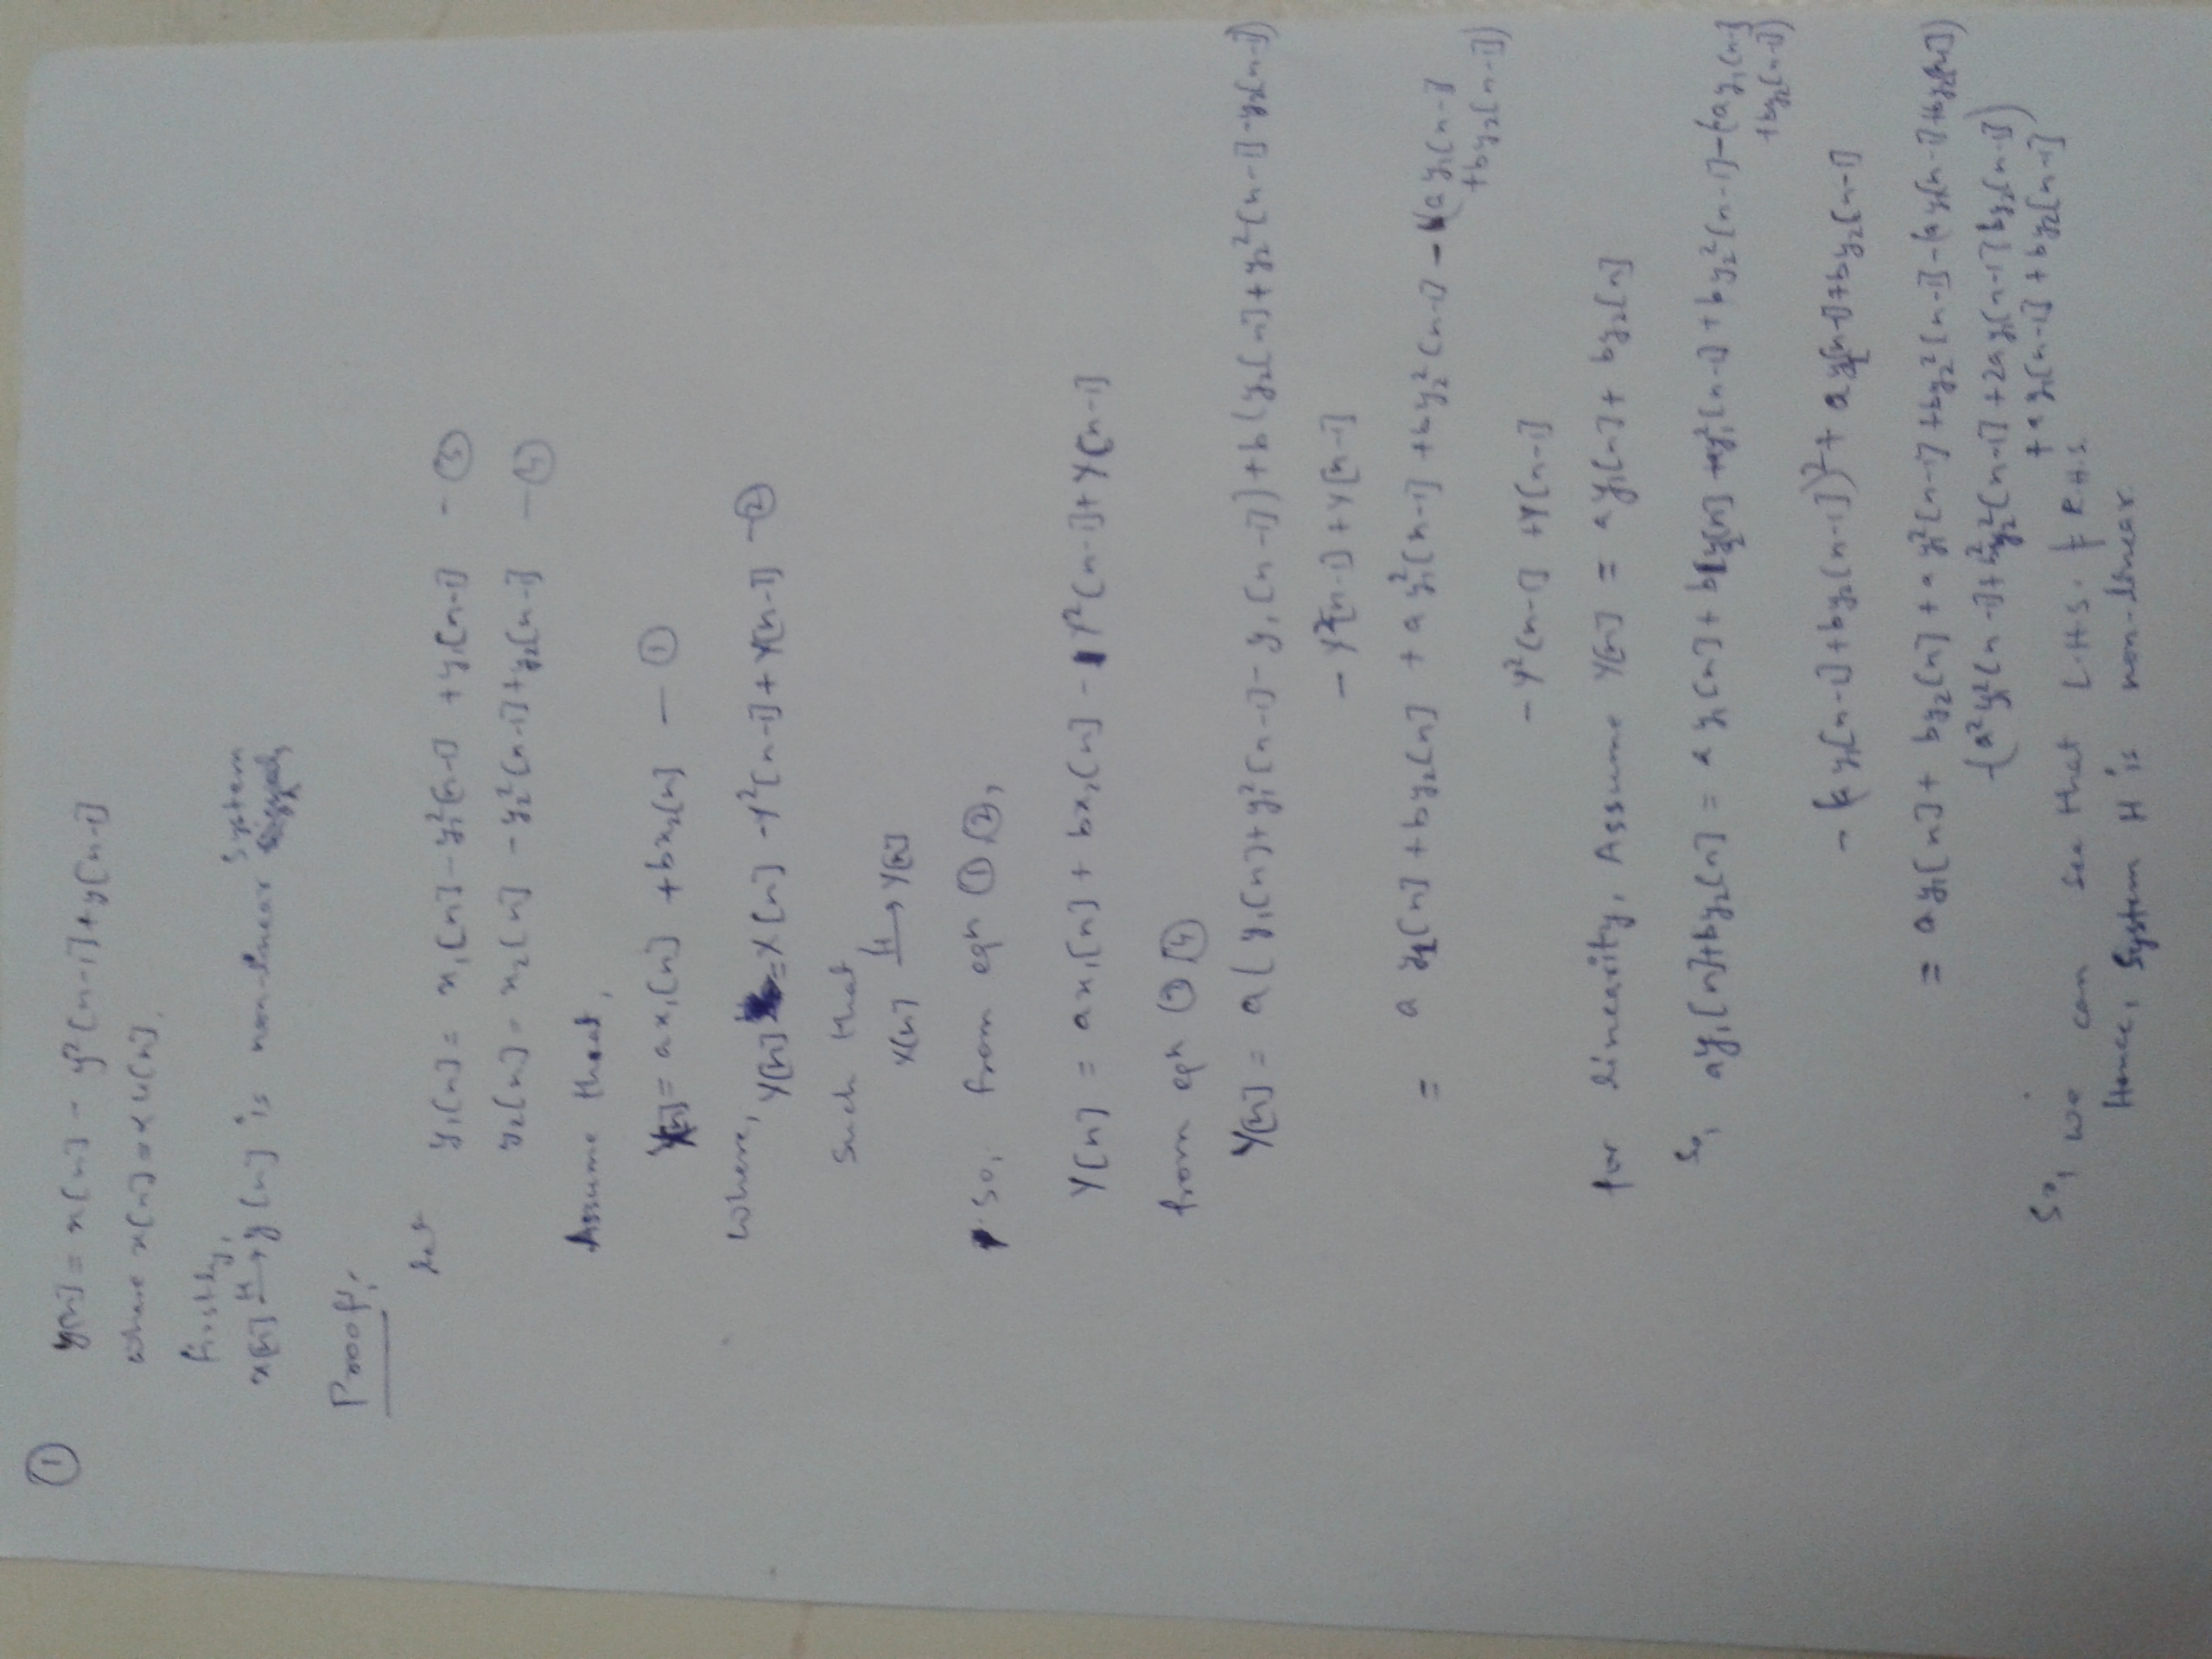 ①
y[n] = x[n] - y²[n-1] + y[n-1]
where x[n] = α u[n].
firstly,
System
x[n] H→ y[n] is non-linear
Proof:
let y₁[n] = x₁[n] - y₁²[n-1] + y₁[n-1] - ③
y₂[n] = x₂[n] - y₂²[n-1] + y₂[n-1] - ④
Assume that,
X[n] = ax₁[n] + bx₂[n] - ①
where, Y[n] = X[n] - Y²[n-1] + Y[n-1] - ②
Such that,
X[n] H→ Y[n]
So, from eqn ① ②,
Y[n] = ax₁[n] + bx₂[n] - Y²[n-1] + Y[n-1]
from eqn ③ ④
Y[n] = a(y₁[n] + y₁²[n-1] - y₁[n-1]) + b(y₂[n] + y₂²[n-1] - y₂[n-1])
- Y²[n-1] + Y[n-1]
= a y₁[n] + by₂[n] + a y₁²[n-1] + by₂²[n-1] - (a y₁[n-1]
+by₂[n-1])
- Y²[n-1] + Y[n-1]
for linearity, Assume Y[n] = ay₁[n] + by₂[n]
So, ay₁[n]+by₂[n] = a y₁[n] + by₂[n] + ay₁²[n-1] + by₂²[n-1] - (ay₁[n-1]
+by₂[n-1])
- (a y₁[n-1] + by₂[n-1])² + a y₁[n-1] + by₂[n-1]
= ay₁[n] + by₂[n] + a y₁²[n-1] + by₂²[n-1] - (a y₁[n-1] + by₂[n-1])
- (a²y₁²[n-1] + b²y₂²[n-1] + 2ay₁[n-1] by₂[n-1])
+ a y₁[n-1] + by₂[n-1]
So, we can see that L.H.S. ≠ R.H.S.
Hence, System H is non-linear.